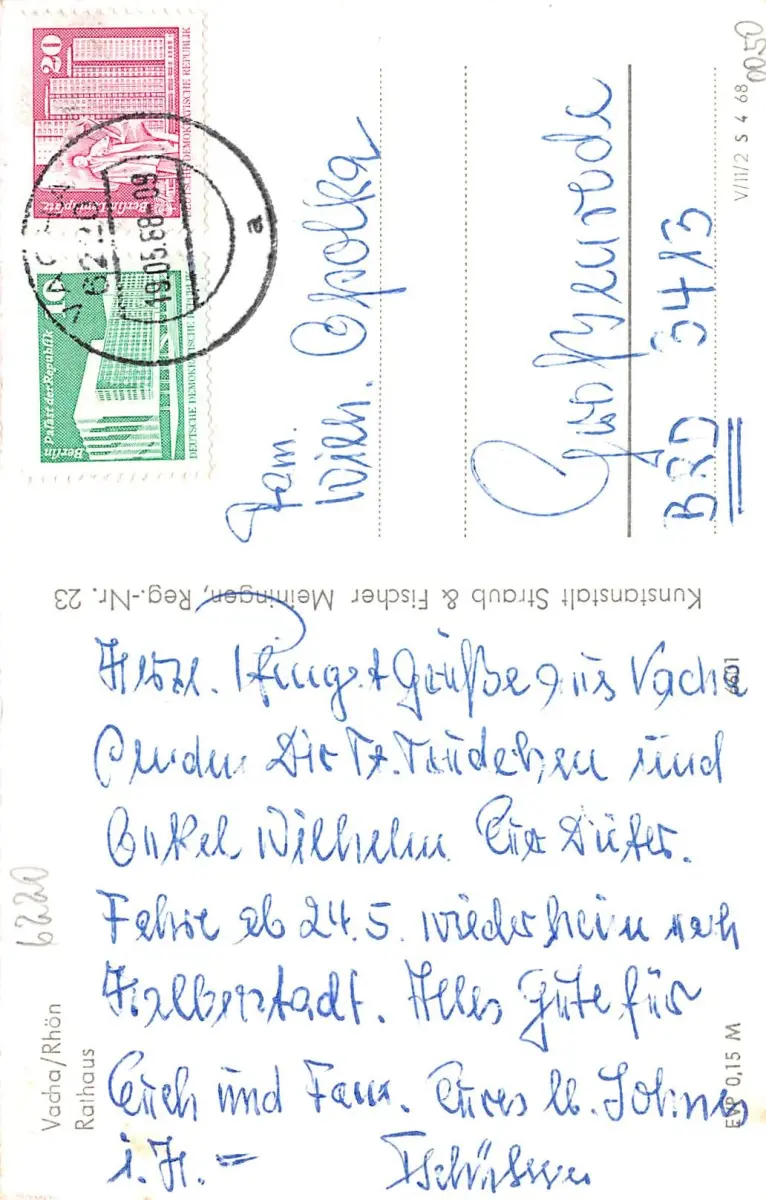 Herzl. Pfingst Grüße aus Vacha
senden Dir Tt. Trudchen und
Onkel Wilhelm. Eure
Fahre ab 24.5. wieder heim nach
Halberstadt. Alles Gute für
Euch und Fam. Eures lb.
i.H. =
Tschüssen
Vacha/Rhön
Rathaus
6220
EVP 0,15 M
Kunstanstalt Straub & Fischer Meiningen, Reg.-Nr. 23
Fam.
Wilh. Opolka
BRD 3413
V/11/2 S 4 68
0050
20
Berlin Leninplatz
DEUTSCHE DEMOKRATISCHE REPUBLIK
10
Berlin Palast der Republik
DEUTSCHE DEMOKRATISCHE
VACHA
6220
19.05.88-09
a